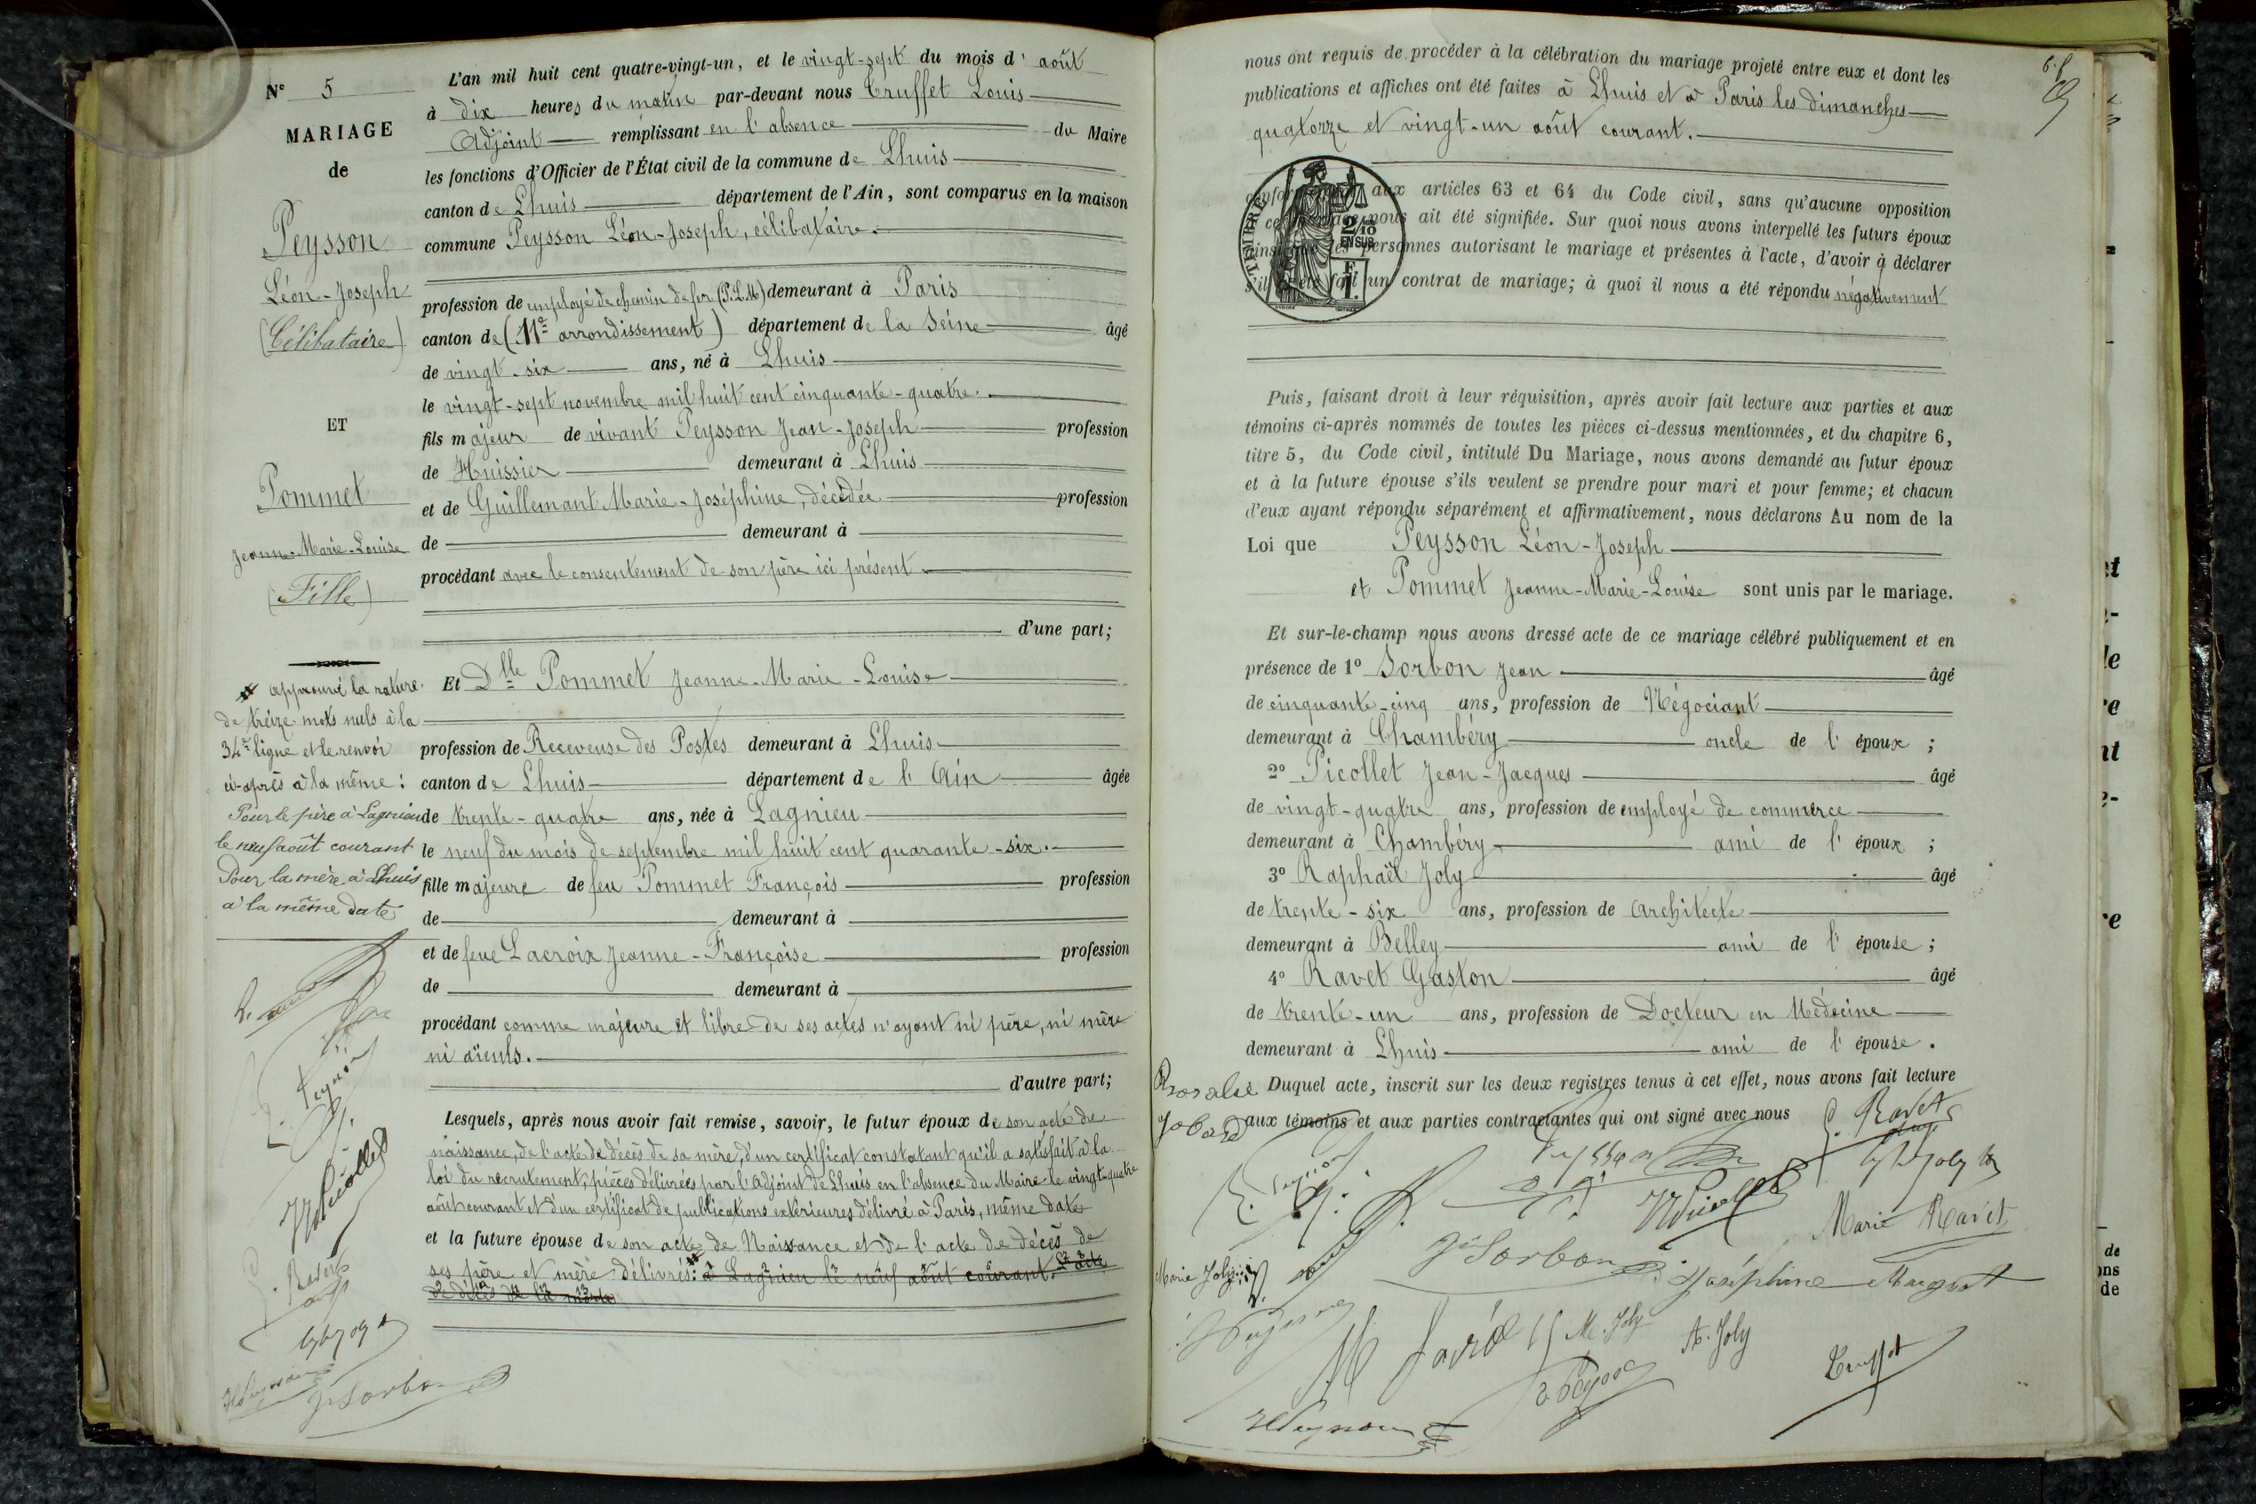 N° 5
MARIAGE
de
Peysson
Léon-Joseph
(Célibataire)
ET
Pommet
Jeanne-Marie-Louise
(Fille)
approuvé la rature
de treize mots nuls à la
34e ligne et le renvoi
ci-après à la même :
Pour le père à Lagnieu
le neuf août courant
Pour la mère à Lhuis
à la même date
L'an mil huit cent quatre-vingt-un, et le vingt-sept du mois d' août
à dix heures du matin par-devant nous Truffet Louis
Adjoint remplissant en l'absence du Maire
les fonctions d'Officier de l'État civil de la commune de Lhuis
canton de Lhuis département de l'Ain, sont comparus en la maison
commune Peysson Léon-Joseph, célibataire.
profession de employé de chemin de fer (P.L.M) demeurant à Paris
canton de (11e arrondissement) département de la Seine âgé
de vingt-six ans, né à Lhuis
le vingt-sept novembre mil huit cent cinquante-quatre.
fils majeur de vivant Peysson Jean-Joseph profession
de Huissier demeurant à Lhuis
et de Guillemant Marie-Joséphine, décédée profession
de demeurant à
procédant avec le consentement de son père ici présent
d'une part;
Et Dlle Pommet Jeanne-Marie-Louise
profession de Receveuse des Postes demeurant à Lhuis
canton de Lhuis département de l'Ain âgée
de trente-quatre ans, née à Lagnieu
le neuf du mois de septembre mil huit cent quarante-six.
fille majeure de feu Pommet François profession
de demeurant à
et de feue Lacroix Jeanne-Françoise profession
de demeurant à
procédant comme majeure et libre de ses actes n'ayant ni père, ni mère
ni aïeuls.
d'autre part;
Lesquels, après nous avoir fait remise, savoir, le futur époux de son acte de
naissance, de l'acte de décès de sa mère, d'un certificat constatant qu'il a satisfait à la
loi du recrutement, pièces délivrées par l'adjoint de Lhuis en l'absence du Maire le vingt-quatre
août courant et d'un certificat de publications extérieures délivré à Paris, même date
et la future épouse de son acte de Naissance et de l'acte de décès de
ses père et mère délivrés: à Lagnieu le neuf août courant. L'acte
de décès de la mère
Picollet
J. Sorbon
nous ont requis de procéder à la célébration du mariage projeté entre eux et dont les
publications et affiches ont été faites à Lhuis et à Paris les dimanches
quatorze et vingt-un août courant.
TIMBRE
2/10
EN SUS
F.
1.
conformément aux articles 63 et 64 du Code civil, sans qu'aucune opposition
à ce mariage nous ait été signifiée. Sur quoi nous avons interpellé les futurs époux
ainsi que les personnes autorisant le mariage et présentes à l'acte, d'avoir à déclarer
s'il a été fait un contrat de mariage; à quoi il nous a été répondu négativement
Puis, faisant droit à leur réquisition, après avoir fait lecture aux parties et aux
témoins ci-après nommés de toutes les pièces ci-dessus mentionnées, et du chapitre 6,
titre 5, du Code civil, intitulé Du Mariage, nous avons demandé au futur époux
et à la future épouse s'ils veulent se prendre pour mari et pour femme; et chacun
d'eux ayant répondu séparément et affirmativement, nous déclarons Au nom de la
Loi que Peysson Léon-Joseph
et Pommet Jeanne-Marie-Louise sont unis par le mariage.
Et sur-le-champ nous avons dressé acte de ce mariage célébré publiquement et en
présence de 1° Sorbon Jean âgé
de cinquante-cinq ans, profession de Négociant
demeurant à Chambéry oncle de l'époux ;
2° Picollet Jean-Jacques âgé
de vingt-quatre ans, profession de employé de commerce
demeurant à Chambéry ami de l'époux ;
3° Raphaël Joly âgé
de trente-six ans, profession de Architecte
demeurant à Belley ami de l'épouse ;
4° Ravet Gaston âgé
de trente-un ans, profession de Docteur en Médecine
demeurant à Lhuis ami de l'épouse.
Duquel acte, inscrit sur les deux registres tenus à cet effet, nous avons fait lecture
aux témoins et aux parties contractantes qui ont signé avec nous
Rosalie
G. Ravet
Marie Ravet
J. Sorbon
Marie Joly
Joséphine
M. Joly
A. Joly
Truffet